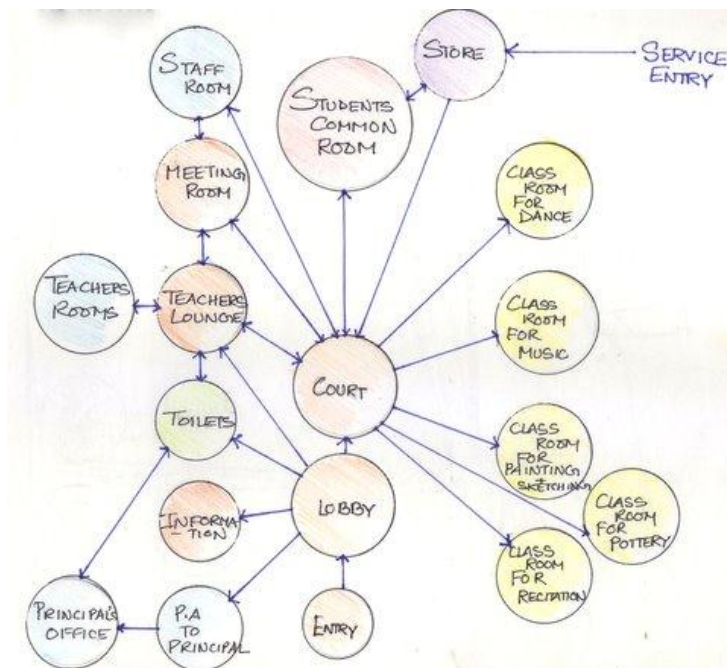 STAFF
ROOM
STORE
SERVICE
ENTRY
STUDENTS
COMMON
ROOM
MEETING
ROOM
CLASS
ROOM
FOR
DANCE
TEACHERS
ROOMS
TEACHERS
LOUNGE
CLASS
ROOM
FOR
MUSIC
COURT
TOILETS
CLASS
ROOM
FOR
PAINTING
+
SKETCHING
CLASS
ROOM
FOR
POTTERY
INFORMA
-TION
LOBBY
CLASS
ROOM
FOR
RECITATION
PRINCIPAL'S
OFFICE
P.A
TO
PRINCIPAL
ENTRY